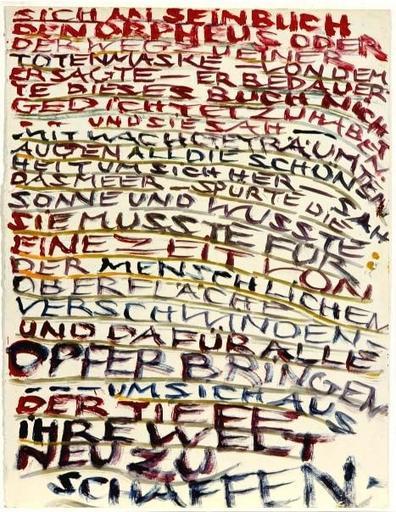 SICH AN SEIN BUCH
DEN ORPHEUS ODER
DER WEG ZU EINER
TOTENMASKE — VON DEM
ER SAGTE — ER BEDAUER
TE DIESES BUCH NICH
GEDICHTET ZU HABEN
- UND SIE SAH —
MIT WACHGETRÄUMTEN
AUGEN ALL DIE SCHÖN
HEIT UM SICH HER — SAH
DAS MEER — SPÜRTE DIE
SONNE UND WUSSTE
SIE MUSSTE FÜR
EINE ZEIT VON
DER MENSCHLICHEN
OBERFLÄCHE
VERSCHWINDEN -
UND DAFÜR ALLE
OPFER BRINGEN
--- UM SICH AUS
DER TIEFE
IHRE WELT
NEU ZU
SCHAFFEN.